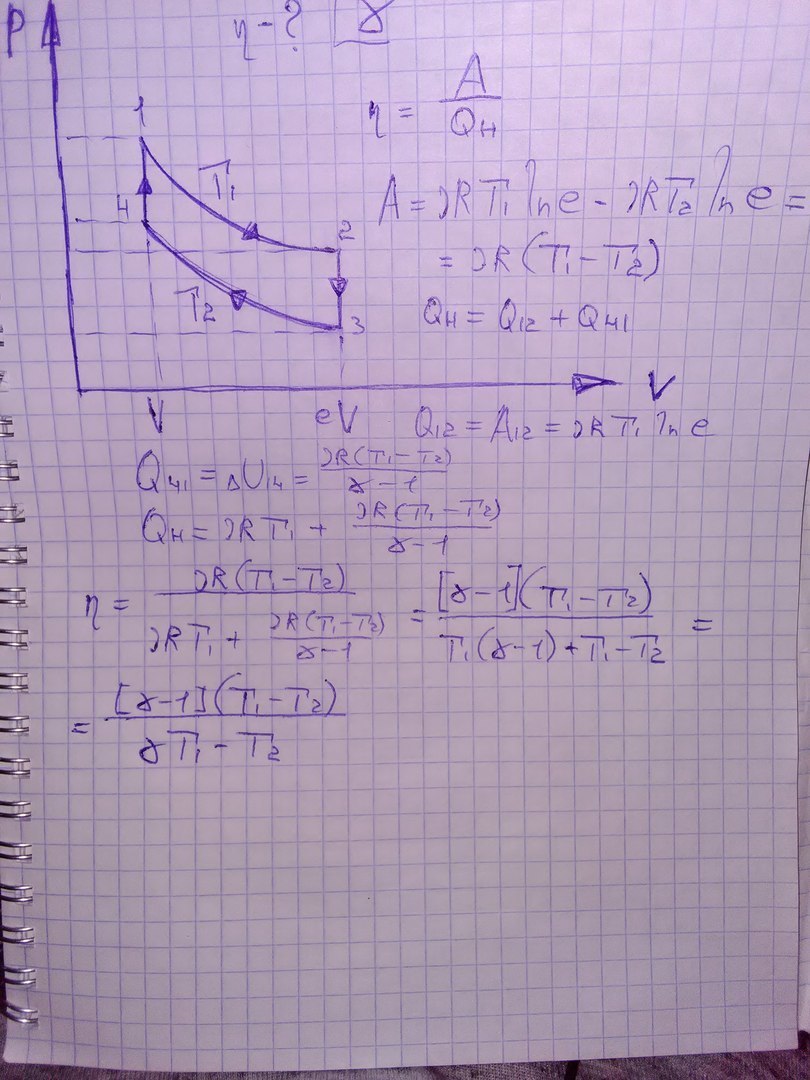 η - ? | γ
P
η = A / Qн
1
T₁
A = νRT₁ ln e - νRT₂ ln e =
4
2
= νR(T₁ - T₂)
T₂
3
Qн = Q₁₂ + Q₄₁
V
V eV
Q₁₂ = A₁₂ = νRT₁ ln e
Q₄₁ = ΔU₁₄ = νR(T₁ - T₂) / γ - 1
Qн = νRT₁ + νR(T₁ - T₂) / γ - 1
η = νR(T₁ - T₂) / νRT₁ + νR(T₁ - T₂) / γ - 1 = [γ - 1](T₁ - T₂) / T₁(γ - 1) + T₁ - T₂ =
= [γ - 1](T₁ - T₂) / γT₁ - T₂